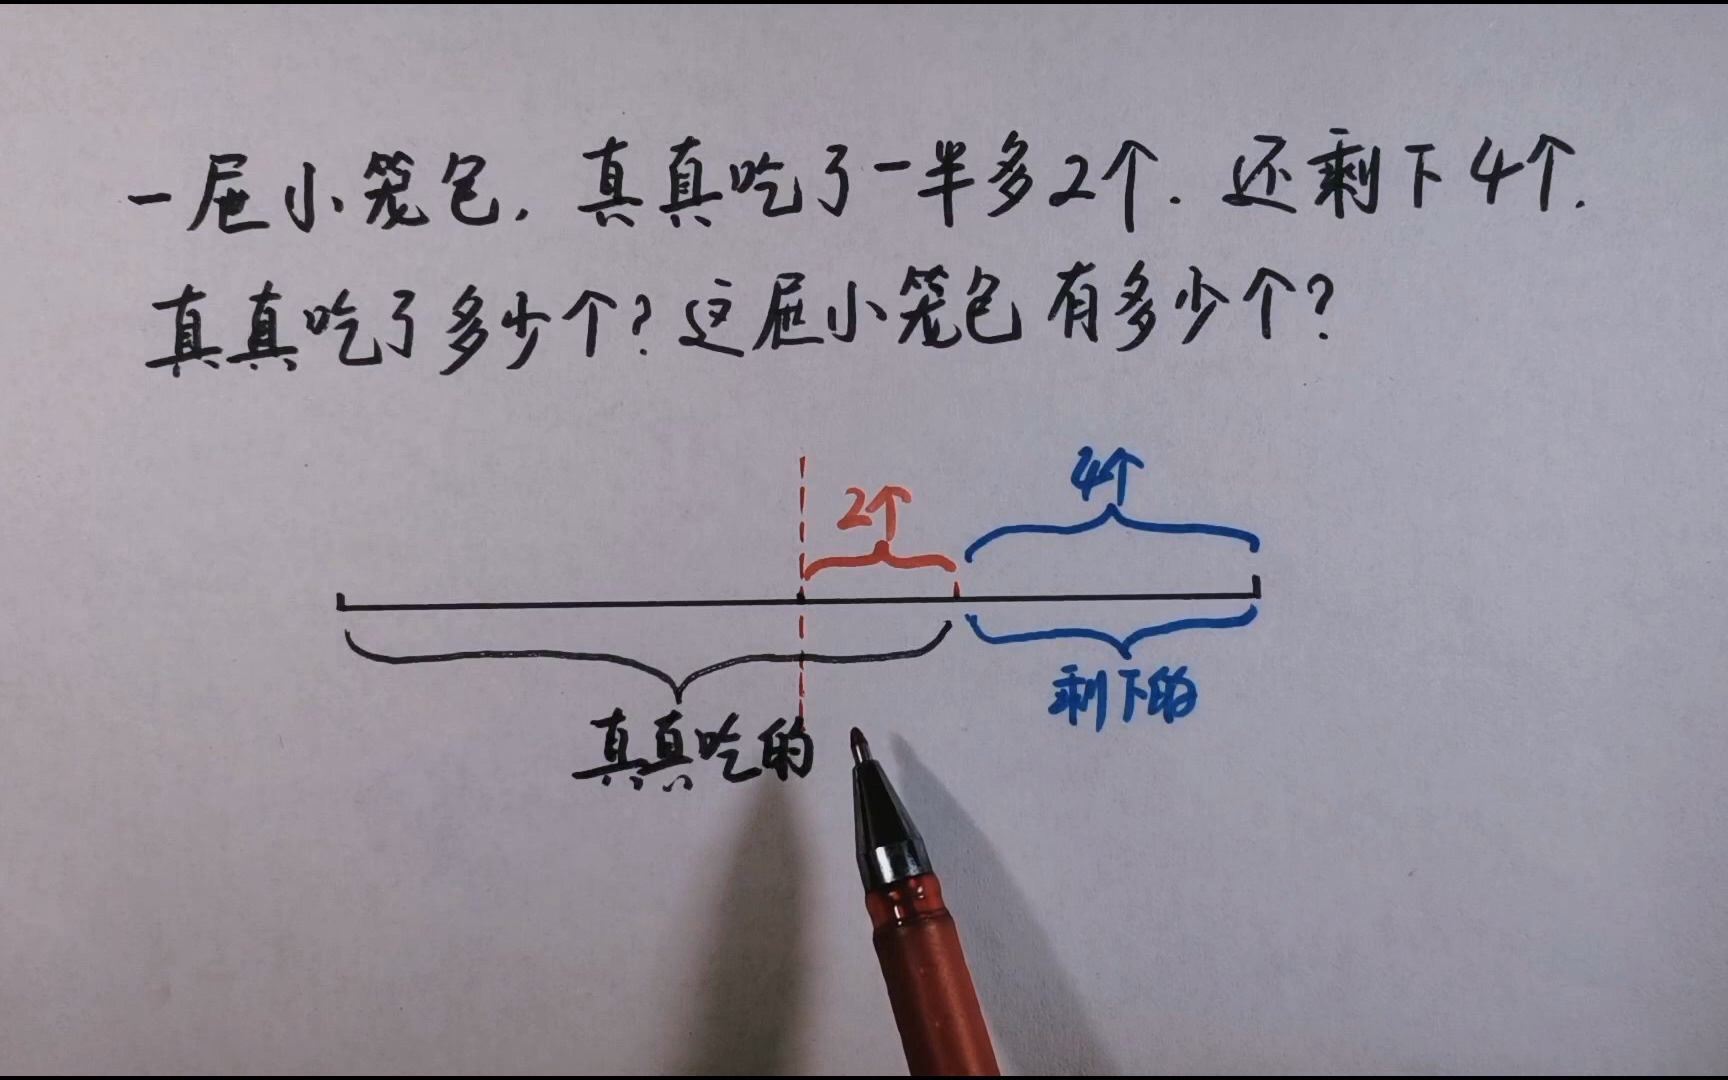 一屉小笼包，真真吃了一半多2个. 还剩下4个.
真真吃了多少个？这屉小笼包有多少个？
4个
2个
剩下的
真真吃的